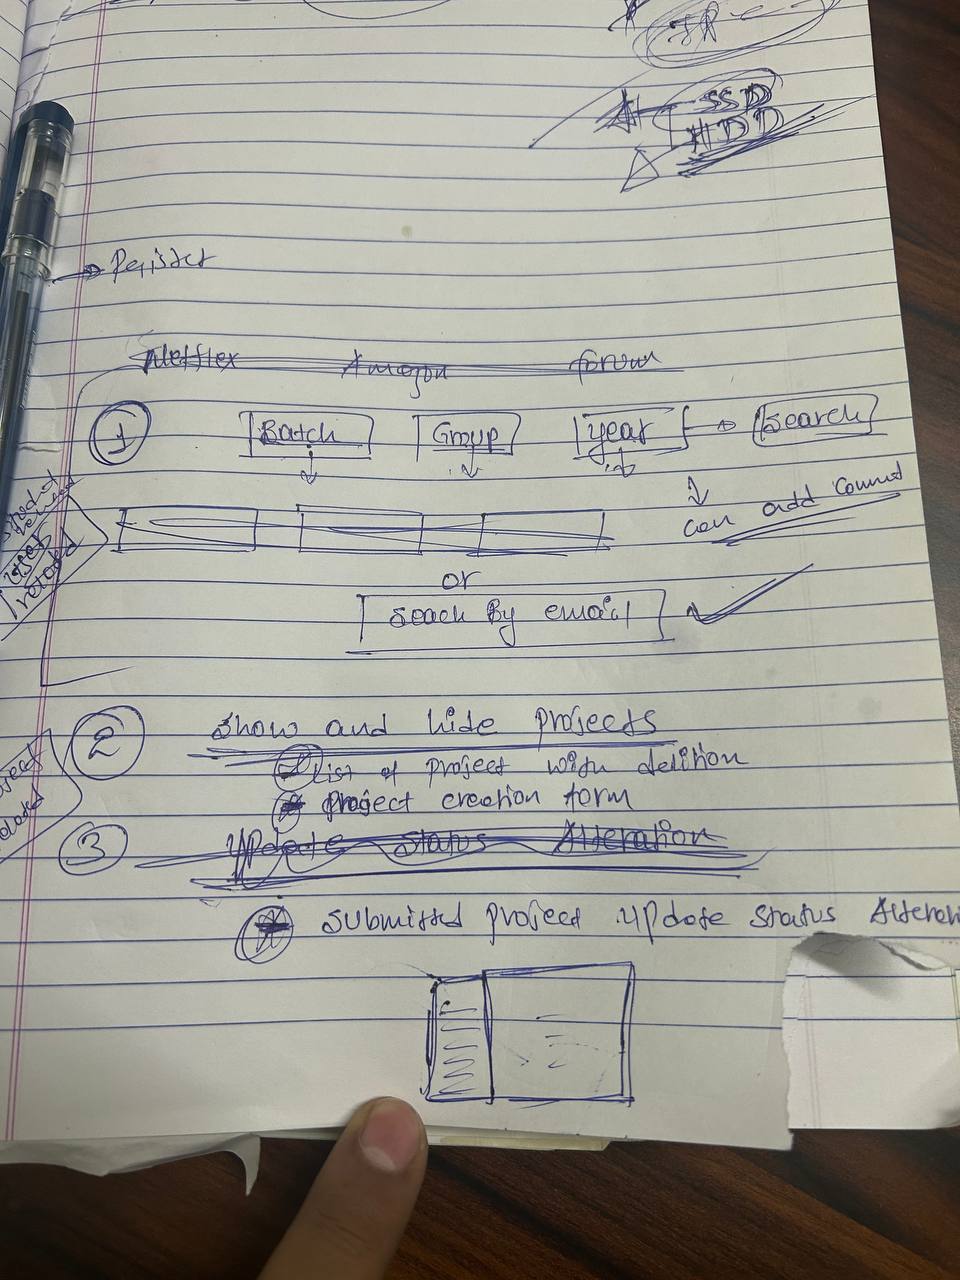 SSD
HDD
→ Register
Netflex Amazon forum
1 Batch Group year → Search
can add
or
Seach By email
2 Show and hide projects
List of project with
project creation form
3 Update Status Alteration
Submitted project update status